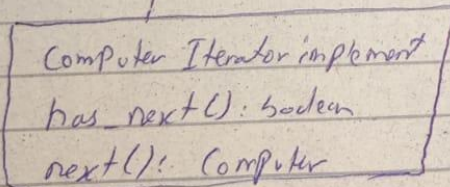 Computer Iterator implement
has_next(): boolean
next(): Computer